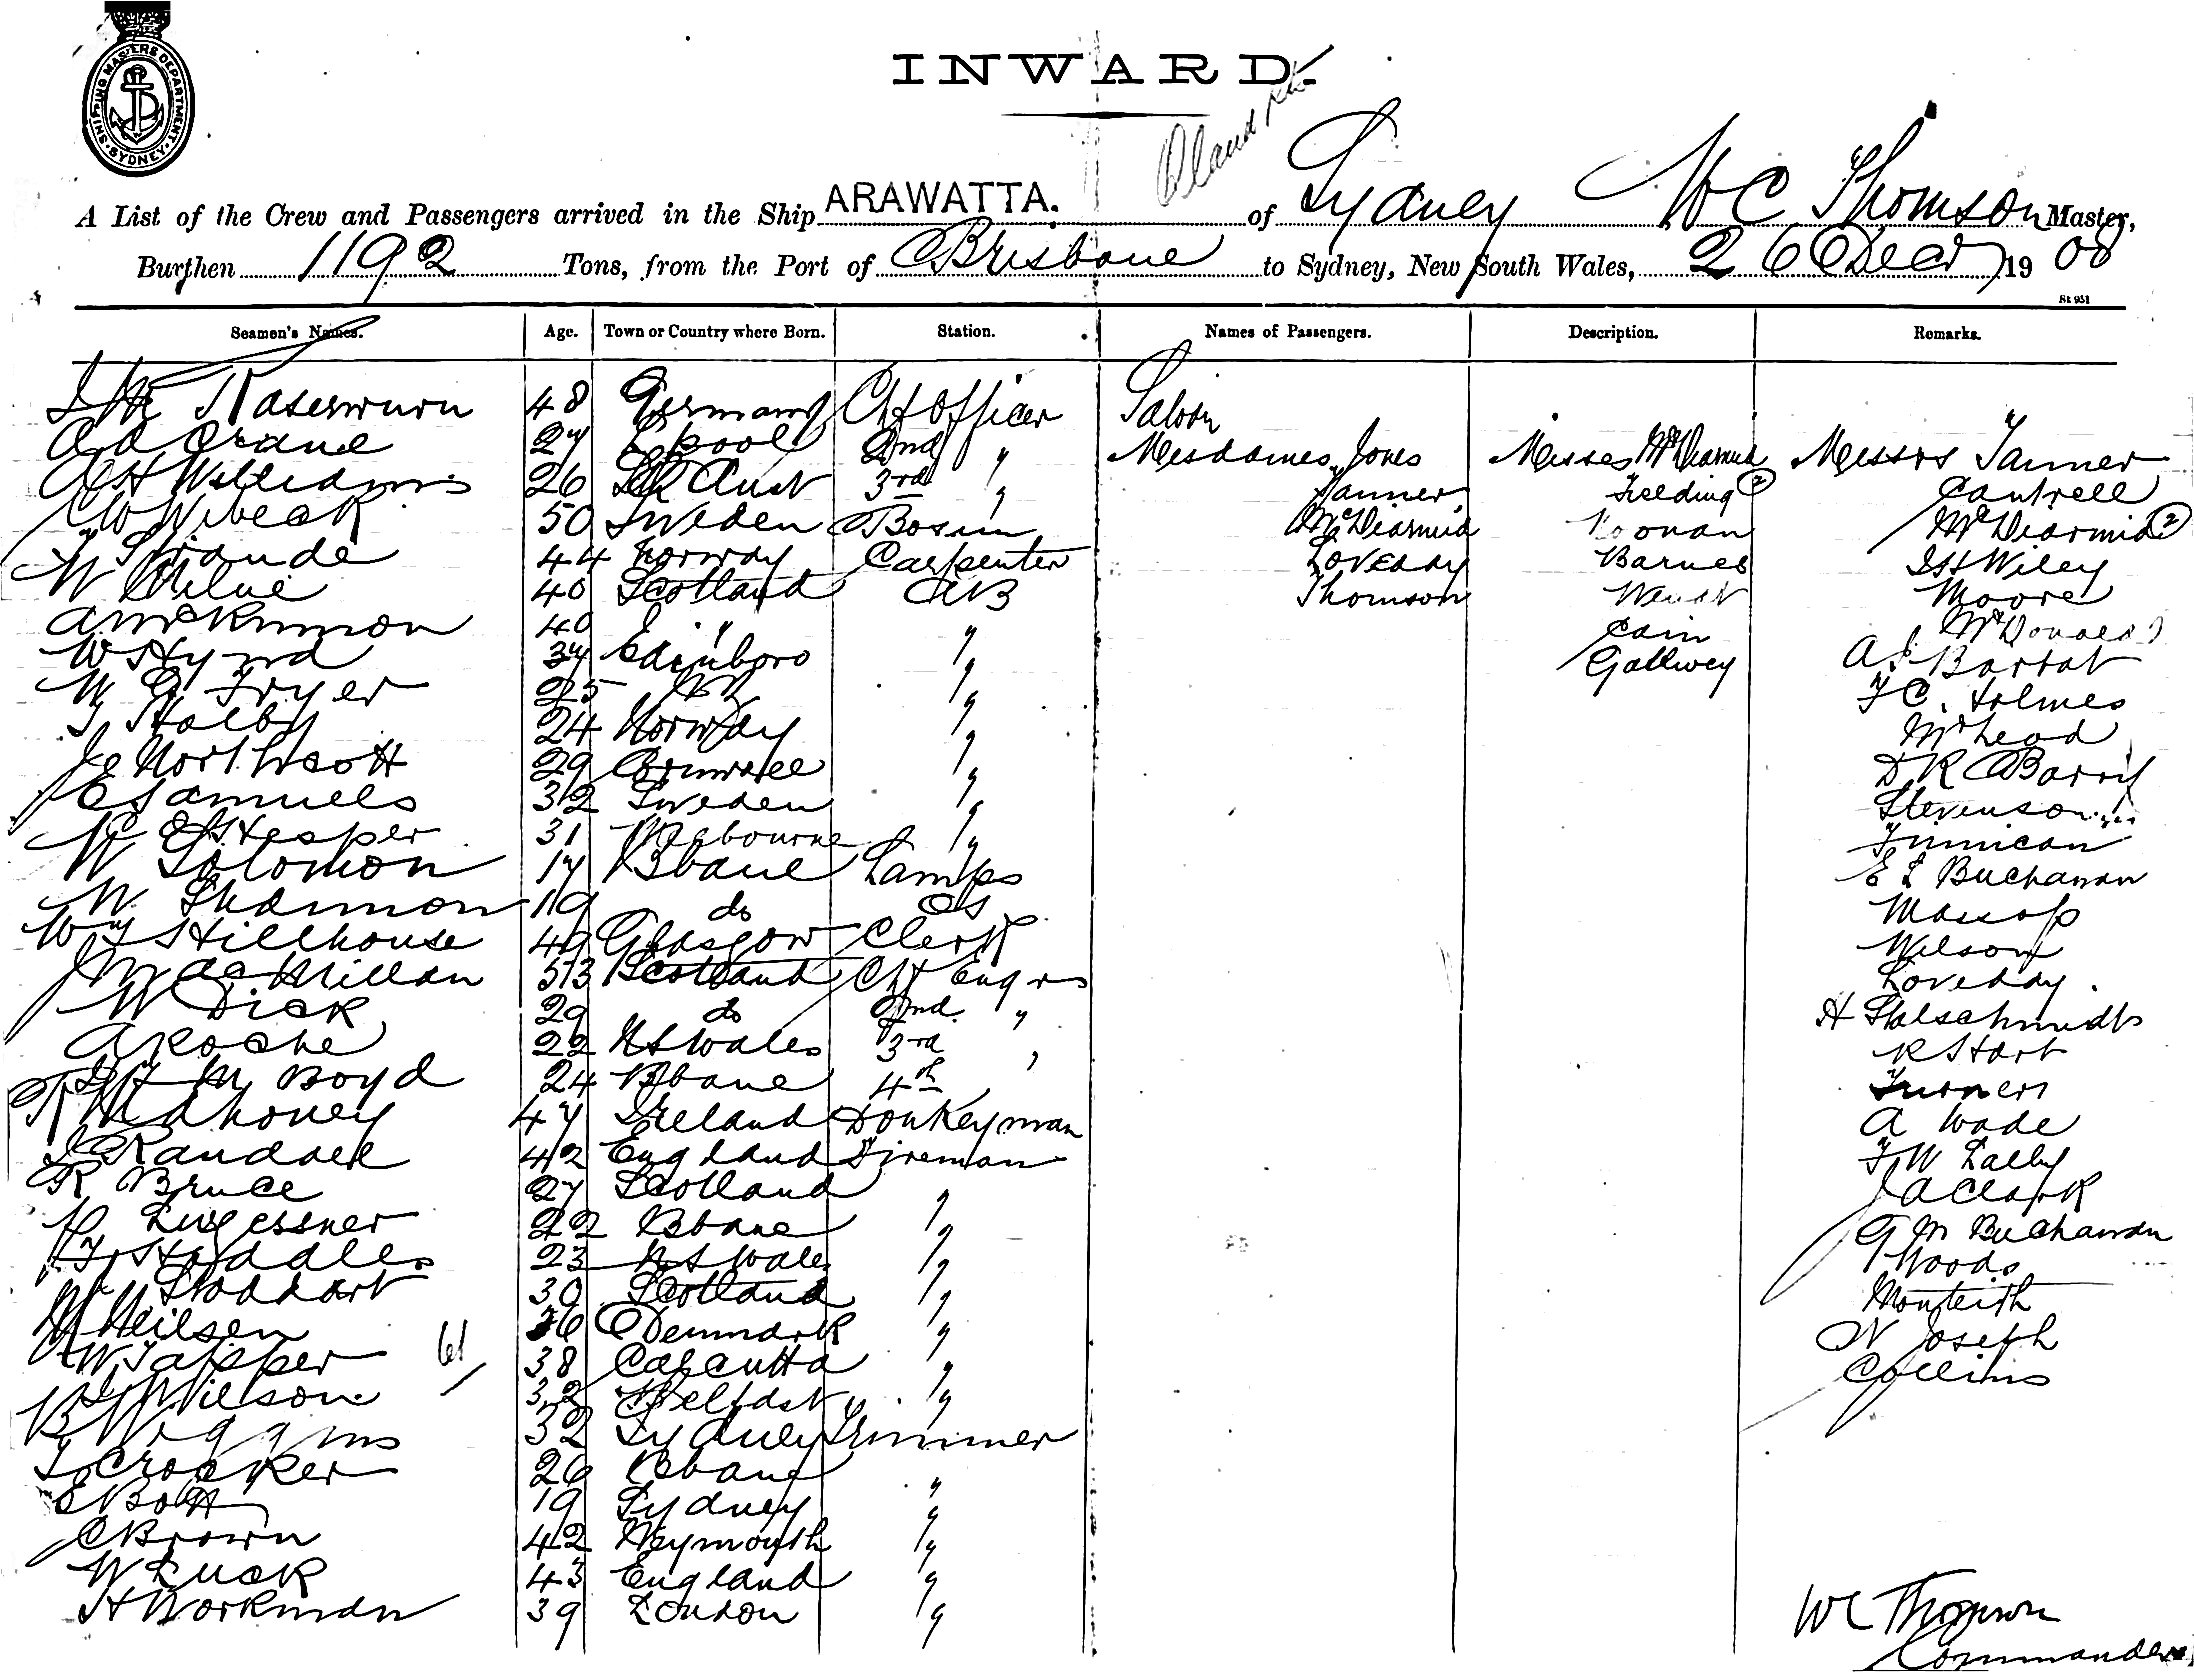 SHIPPING MASTERS DEPARTMENT SYDNEY
INWARD.
A List of the Crew and Passengers arrived in the Ship ARAWATTA. of Sydney W C Thomson Master,
Burthen 1192 Tons, from the Port of Brisbane to Sydney, New South Wales, 26 Decr 1908
St 931
Seamen's Names. Age. Town or Country where Born. Station. Names of Passengers. Description. Remarks.
48 Germany Ch Officer Saloon
A A Crane 27 L'pool 2nd " Mesdames Jones Misses McDiarmid Messrs Tanner
A H Williams 26 Sth Aust 3rd " Tanner Fielding 2 Cantrell
C W Wibeck 50 Sweden Bosun McDiarmid Noonan McDiarmid 2
44 Norway Carpenter Loveday Barnes Wiley
W Milne 40 Scotland AB Thomson Moore
A McKinnon 40 " " Cain McDonald
W Hynd 37 Edinboro " Gallwey A J Barrat
W G Fryer 25 NZ " F C. Holmes
T Holby 24 Norway " McLeod
J Northcott 29 Cornwall " D R Barry
E Samuels 32 Sweden " Stevenson
Hesper 31 Melbourne " Finnican
W Solomon 17 Bbane Lamps E L Buchanan
W. Shannon 19 do OS Mossop
Wm Hillhouse 49 Glasgow Clerk Wilson
J MacMillan 53 Scotland Ch Engr Loveday.
W Dick 29 do 2nd. " H Stalschmidt
A Roche 22 N S Wales 3rd " R Hart
M Boyd 24 Bbane 4th Turner
Mahoney 47 Ireland Donkeyman A Wade
J Randall 42 England Fireman F W Lalby
R Bruce 27 Scotland " J A Clark
22 Bbane " G M Buchanan
23 N S Wales " Woods
Stoddart 30 Scotland " Monteith
Neilsen 36 Denmark " N Joseph
W Tapper 61 38 Calcutta " Collins
Wilson 32 Belfast "
B Wiggins 32 Sydney Trimmer
T Crocker 26 Bbane "
E Bott 19 Sydney "
C Brown 42 Weymouth "
W Luck 43 England "
H Workman 39 London "
W C Thomson
Commander